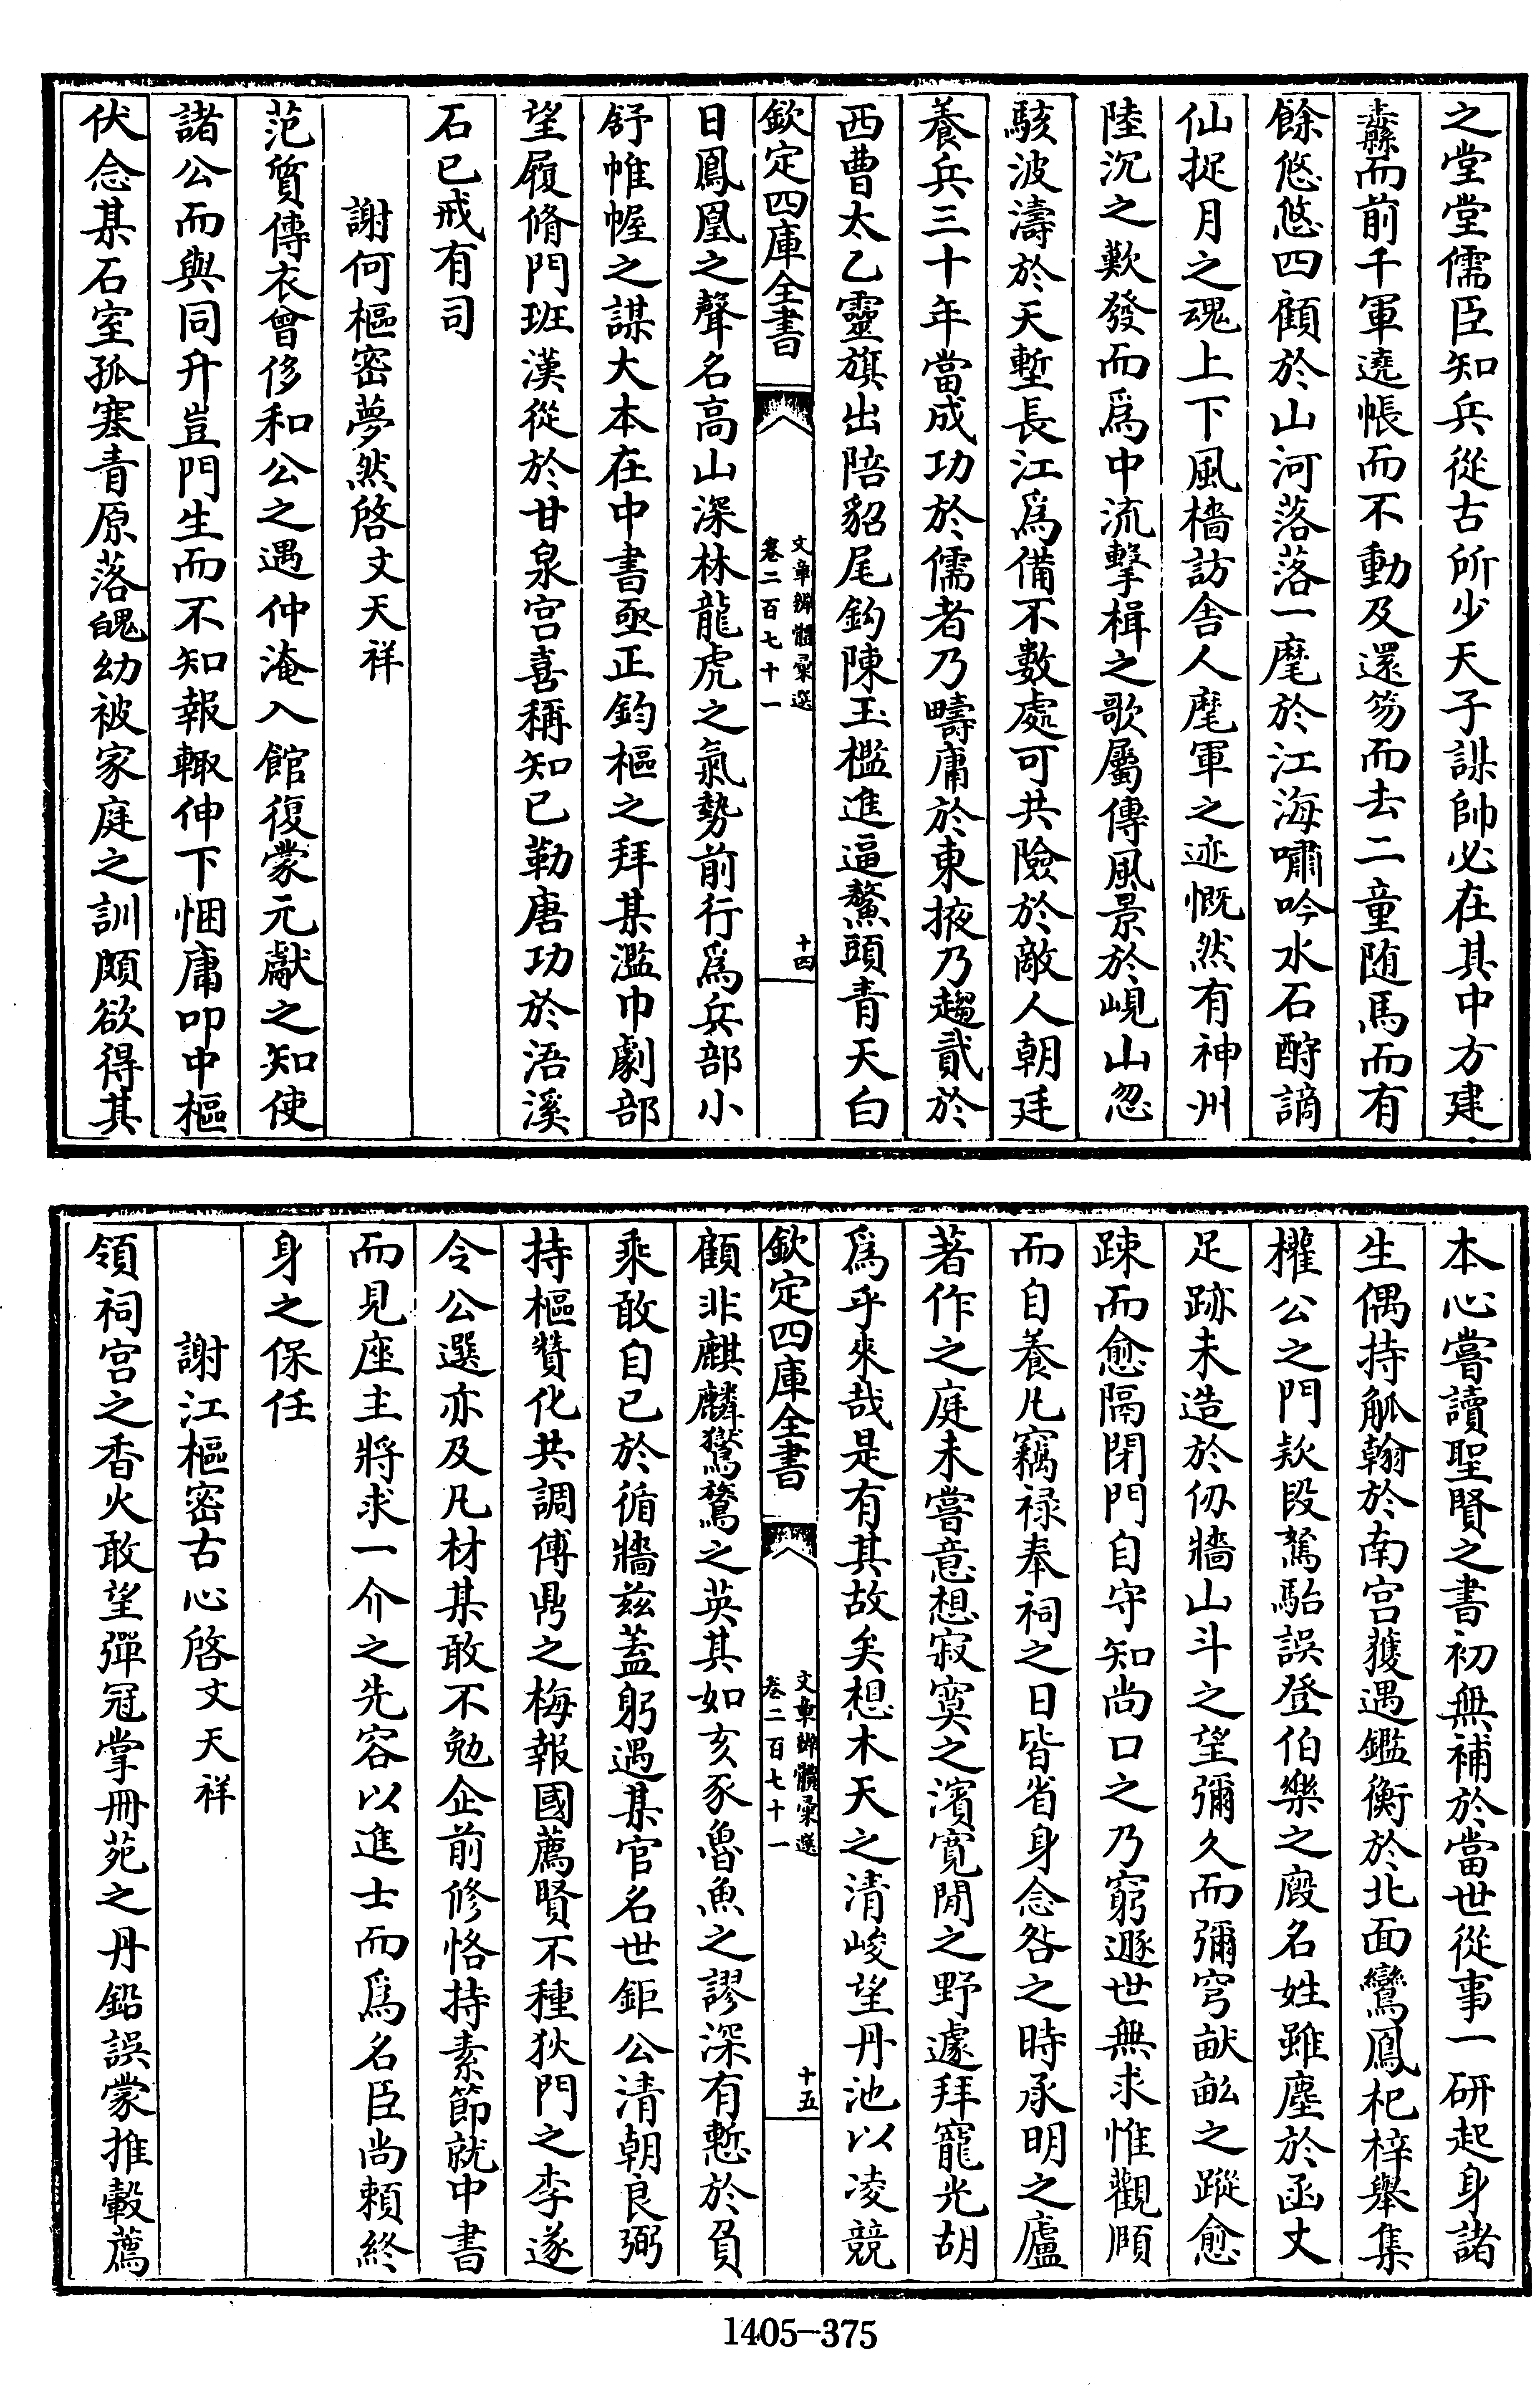 之堂堂儒臣知兵從古所少天子謀帥必在其中方建
纛而前千軍遶帳而不動及還笏而去二童随馬而有
餘悠悠四顧於山河落落一麾於江海嘯吟水石酹謫
仙捉月之魂上下風檣訪舎人麾軍之迹慨然有神州
陸沉之歎發而爲中流擊楫之歌屬傳風景於峴山忽
駭波濤於天塹長江爲備不數處可共險於敵人朝廷
養兵三十年當成功於儒者乃疇庸於東掖乃趨貳於
西曹太乙靈旗出陪貂尾鈎陳玉檻進逼鰲頭青天白
欽定四庫全書
文章辨體彙選
卷二百七十一
十四
日鳳凰之聲名高山深林龍虎之氣勢前行爲兵部小
舒帷幄之謀大本在中書亟正鈞樞之拜某濫巾劇部
望履脩門班漢從於甘泉宫喜稱知已勒唐功於浯溪
石已戒有司
謝何樞密夢然啓文天祥
范質傳衣曾侈和公之遇仲淹入館復蒙元獻之知使
諸公而與同升豈門生而不知報輙伸下悃庸叩中樞
伏念某石室孤寒青原落魄幼被家庭之訓頗欲得其
本心嘗讀聖賢之書初無補於當世從事一研起身諸
生偶持觚翰於南宫獲遇鑑衡於北面鸞鳳杞梓舉集
權公之門欵段駑駘誤登伯樂之廏名姓雖塵於函丈
足跡未造於仭牆山斗之望彌久而彌穹畎畝之蹤愈
踈而愈隔閉門自守知尚口之乃窮遯世無求惟觀頤
而自養凡竊禄奉祠之日皆省身念咎之時承明之廬
著作之庭未嘗意想寂寞之濱寛閒之野遽拜寵光胡
爲乎來哉是有其故矣想木天之清峻望丹池以凌競
欽定四庫全書
文章辨體彙選
卷二百七十一
十五
顧非麒麟鸑鷟之英其如亥豕魯魚之謬深有慙於負
乘敢自已於循牆兹蓋躬遇某官名世鉅公清朝良弼
持樞贊化共調傅鼎之梅報國薦賢不種狄門之李遂
令公選亦及凡材某敢不勉企前修恪持素節就中書
而見座主將求一介之先容以進士而爲名臣尚賴終
身之保任
謝江樞密古心啓文天祥
領祠宫之香火敢望彈冠掌冊苑之丹鉛誤蒙推轂薦
1405-375